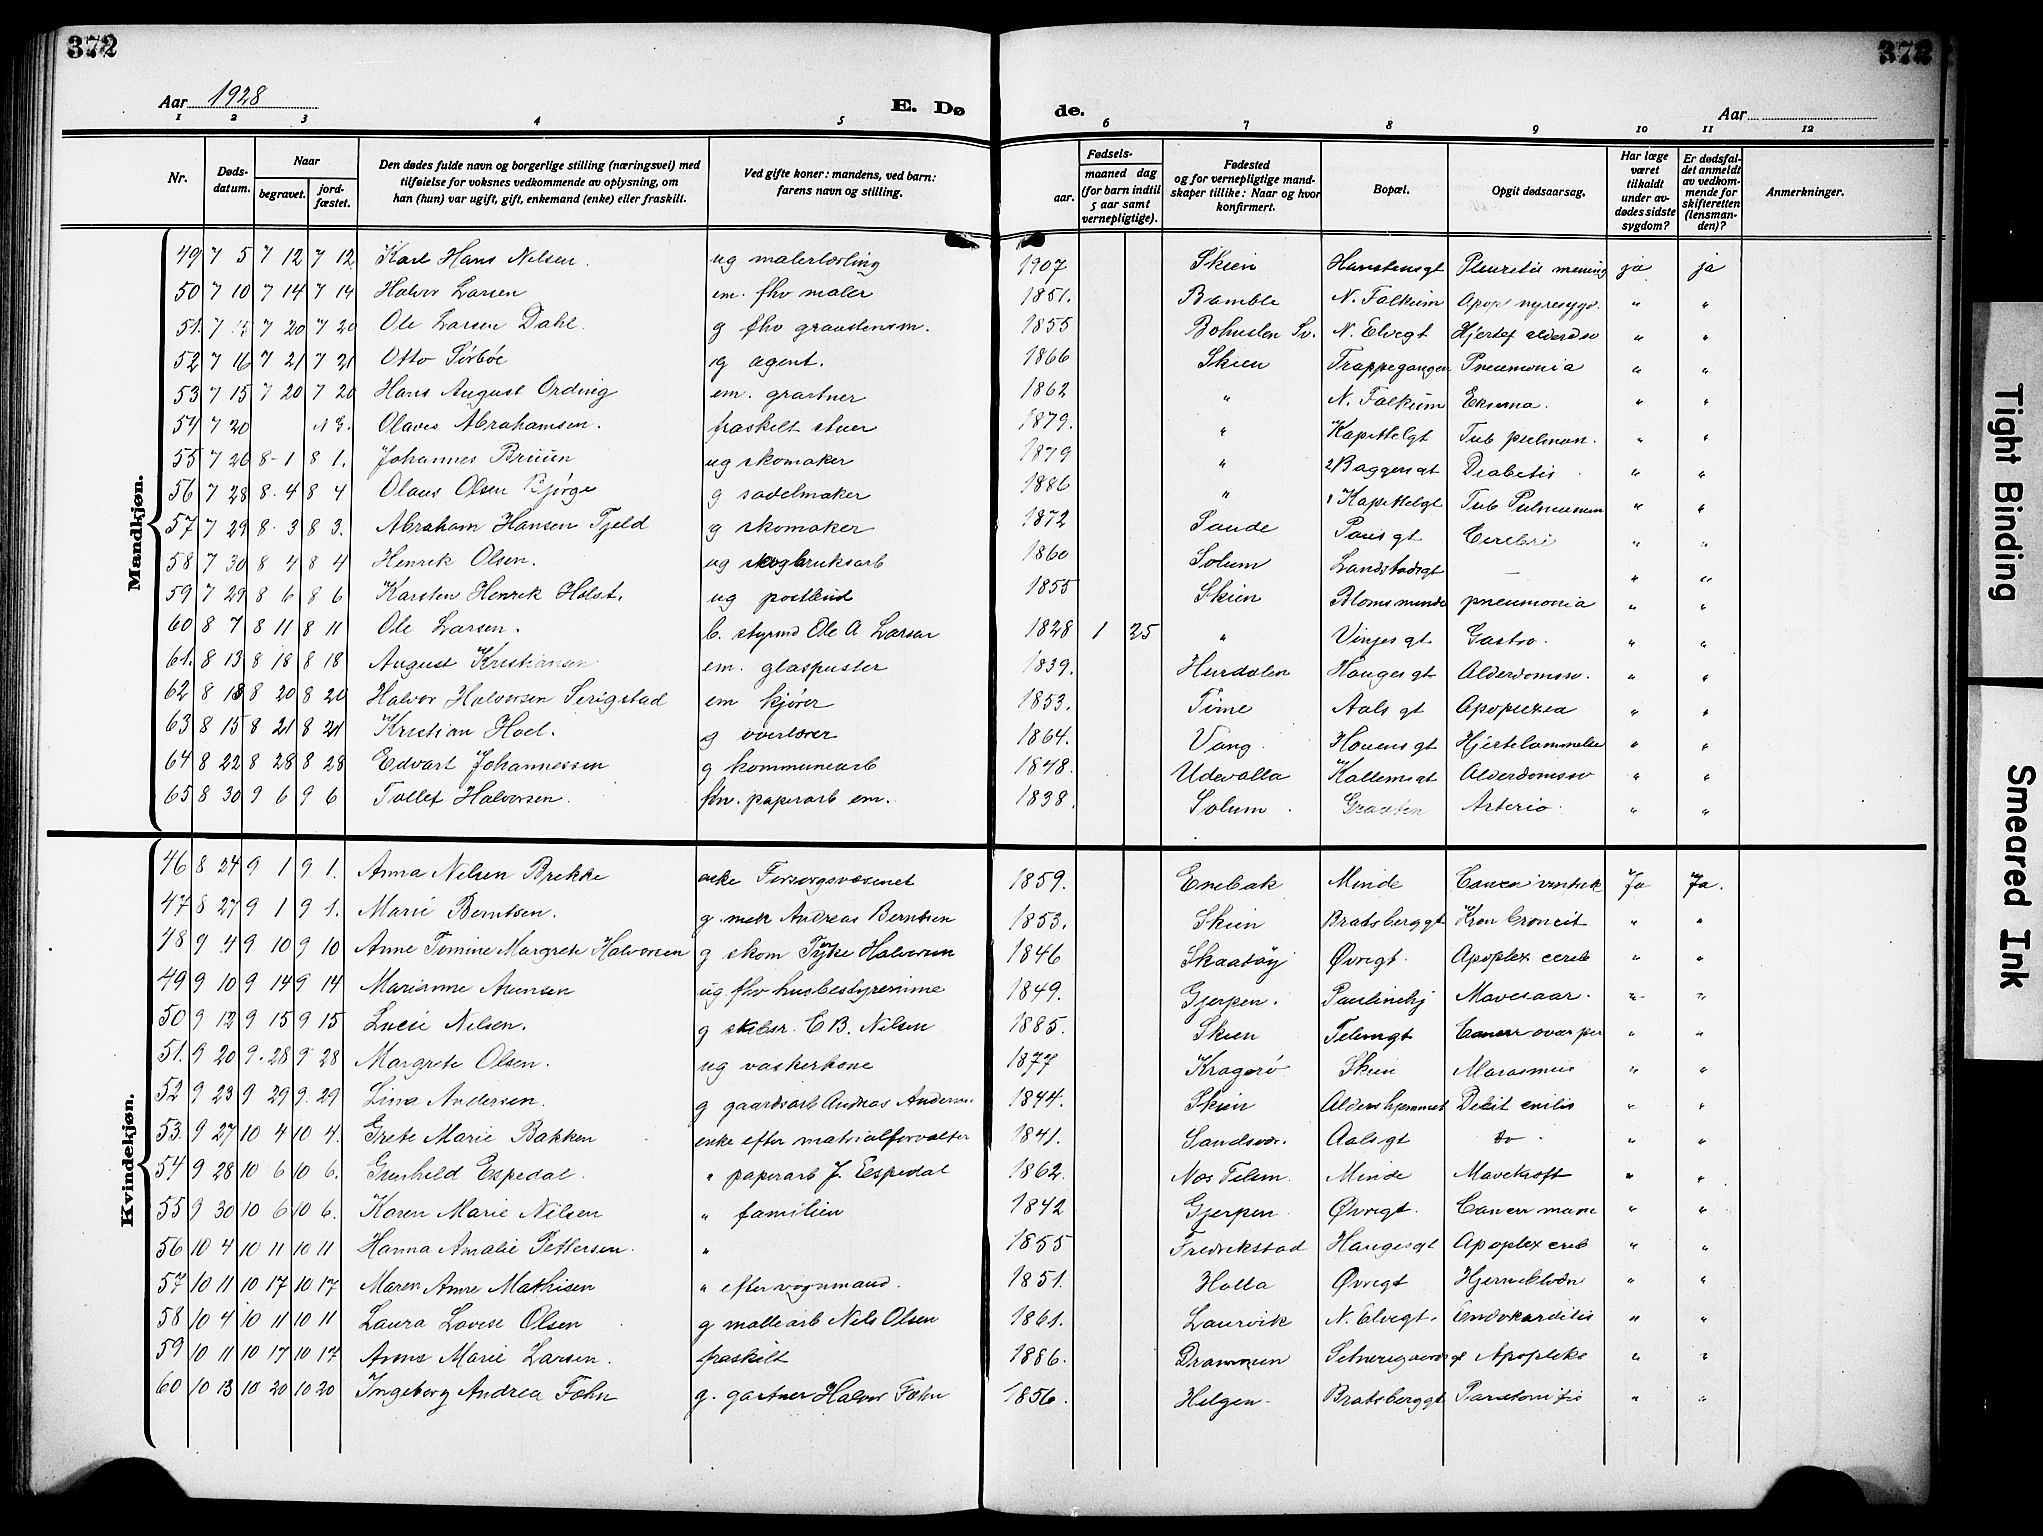 372
372
Aar 1928
E. Dø de.
Aar
1 2 3 4 5 6 7 8 9 10 11 12
Nr.
Døds-datum.
Naar
begravet.
jord-fæstet.
Den dødes fulde navn og borgerlige stilling (næringsvei) med tilføielse for voksnes vedkommende av oplysning, om han (hun) var ugift, gift, enkemand (enke) eller fraskilt.
Ved gifte koner: mandens, ved barn: farens navn og stilling.
Fødsels-
aar. maaned dag (for barn indtil 5 aar samt vernepligtige).
Fødested og for vernepligtige mandskaper tillike: Naar og hvor konfirmert.
Bopæl.
Opgit dødsaarsag.
Har læge været tilkaldt under avdødes sidste sygdom?
Er dødsfaldet anmeldt av vedkommende for skifteretten (lensmanden)?
Anmerkninger.
Mandkjøn.
49 7 5 7 12 7 12 Karl Hans Nilsen. ug malerlærling 1907 Skien Hanstensgt Pleuretis mening ja ja
50 7 10 7 14 7 14 Halvor Larsen em. fhv maler 1851. Bamble N. Falkum Apop nyresygd. " "
51. 7 7 20 7 20 Ole Larsen Dahl. g fhv graastensm. 1855 Bohuslen Sv. N. Elvegt Hjertef alderdsv " "
52 7 16 7 21 7 21 Otto Sørbøe g agent. 1866 Skien Trappegangen Pneumonia " "
53 7 15 7 20 7 20 Hans August Ording em. gartner 1862 " N. Falkum Eksema. " "
54 7 20 Olaves Abrahamsen. fraskilt stuer 1879. " Kapittelgt Tub pulmon. " "
55 7 26 8-1 8 1. Johannes Bruun ug skomaker 1879 " Baggensgt Diabetis " "
56 7 28 8-4 8 4 Olaus Olsen Bjørge g sadelmaker 1886 " Kapittelgt Tub Pulmunum " "
57 7 29 8-3 8 3. Abraham Hansen Fjeld g skomaker 1872 Saude Pausgt Cerebri " "
58 7 30 8 4 8 4 Henrik Olsen. ug skogbruksarb 1860 Solum Landstadsgt — " "
59 7 29 8 6 8 6 Karsten Henrik Holst. ug postbud 1855 Skien Blomsminde pneumonia " "
60 8 7 8 11 8 11 Ole Larsen. b. styrmd Ole A Larsen 1828 1 25 " Vinjesgt Gastro. " "
61. 8 13 8 18 8 18 August Kristiansen em. glaspuster 1839. Hurdalen Haugesgt Alderdomssv. " "
62 8 13 8 20 8 20 Halvor Halvorsen Serigstad em kjører 1853. Time Aalsgt Apoplexia " "
63 8 15 8 21 8 21 Kristian Hoel. g overlærer 1864. Vang. Hauensgt Hjertelammelse " "
64 8 22 8 28 8 28 Edvart Johannessen g kommunearb 1848. Udevalla Kallemsgt Alderdomssv " "
65 8 30 9 6 9 6 Tollef Halvorsen. fhv. paperarb em. 1838. Solum. Graaten Arterio. " "
Kvindekjøn.
46 8 24 9 1 9 1. Anna Nilsen Brekke enke Forsorgsvæsenet 1859. Enebak Minde Cancer ventrik Ja Ja.
47 8 27 9 1 9 1. Marie Berntsen. g. mek Andreas Berntsen 1853. Skien Bratsberggt Kron Broncit " "
48 9 4 9 10 9 10 Anne Tomine Margrete Halvorsen g skom Halvorsen 1846 Skaatøy Øvregt. Apoplex cereb " "
49 9 10 9 14 9 14 Marianne Arensen ug. fhv husbestyrerinne 1849. Gjerpen. Paulinehj Mavesaar. " "
50 9 12 9 15 9 15 Lucie Nilsen. g skibsr. C B. Nilsen 1885. Skien Telemgt Cancer ovar per " "
51. 9 20 9. 28 9 28 Margrete Olsen. ug vaskerkone 1877 Kragerø Skien Marasmus " "
52 9 23 9 29 9. 29 Lina Andersen. g gaardsarb Andreas Andersen 1844. Skien Aldershjemmet Debit enilis " "
53. 9 27 10 4 10 4. Grete Marie Bakken enke efter matrialforvalter 1841. Sandsvær. Aalsgt do. " "
54 9 28 10 6 10 6. Gunhild Espedal. " paperarb J. Espedal 1862. Nos Telem. Minde Mavekræft " "
55 9 30 10 6 10 6. Karen Marie Nilsen " familien 1842 Gjerpen. Øvregt. Cancer mam " "
56 10 4 10 11 10 11 Hanna Amalie Pettersen. " 1855 Fredrikstad Haugesgt Apoplex cereb " "
57 10 11 10 17 10 17 Maren Anne Mathisen " efter vognmand. 1851. Holla Øvregt Hjerneblødn " "
58 10 4 10 11 10 11 Laura Lovise Olsen g mallearb Nils Olsen 1861. Laurvik N. Elvegt. Endokarditis " "
59 10 11 10 17 10 17 Anna Marie Larsen. fraskilt 1886. Drammen Apopleks " "
60 10 13 10 20 10 20 Ingeborg Andrea Foehn g. gartner Halvor Foehn 1856. Helgen. Bratsberggt " "
Tight Binding
Smeared Ink